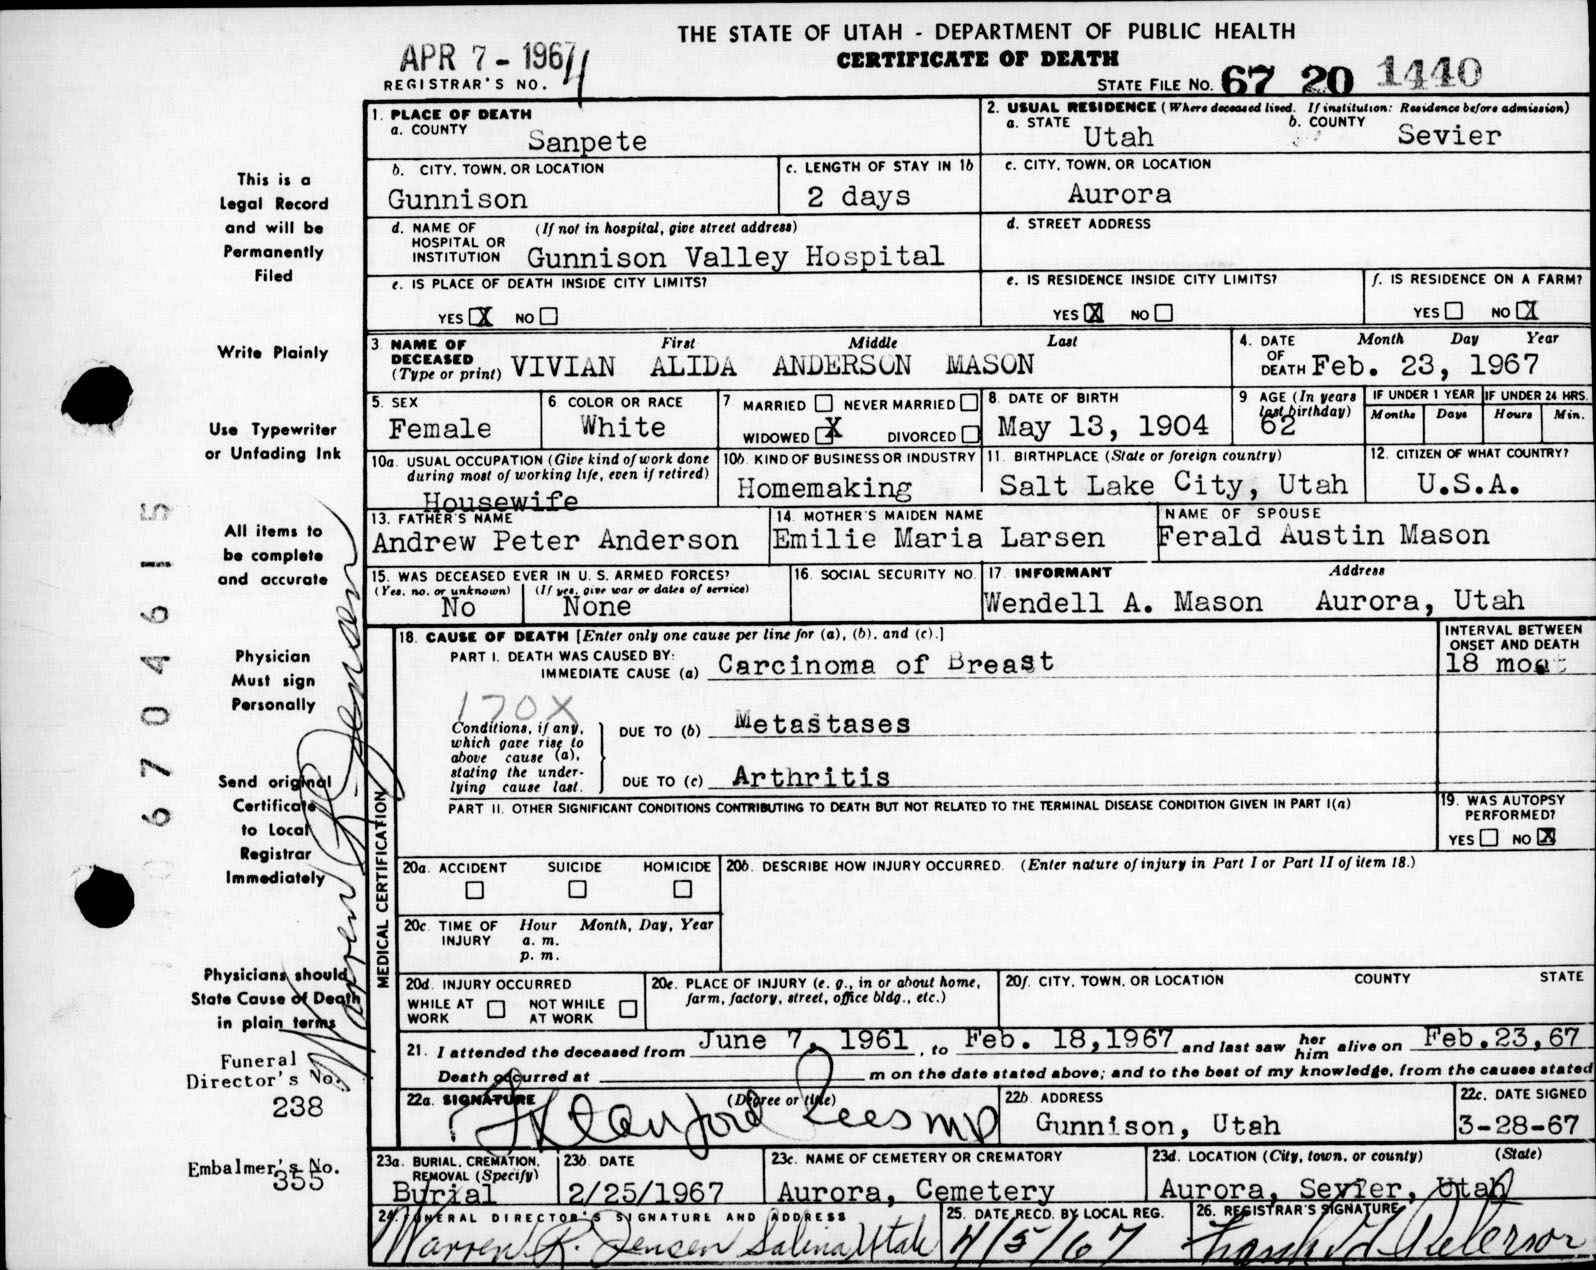 THE STATE OF UTAH - DEPARTMENT OF PUBLIC HEALTH
CERTIFICATE OF DEATH
APR 7 - 1967
REGISTRAR'S NO. 4
STATE FILE NO. 67 20 1440
This is a
Legal Record
and will be
Permanently
Filed
Write Plainly
Use Typewriter
or Unfading Ink
All items to
be complete
and accurate
Physician
Must sign
Personally
Send original
Certificate
to Local
Registrar
Immediately
Physicians should
State Cause of Death
in plain terms
Funeral
Director's No.
238
Embalmer's No.
355
06704615
Warren R Jensen
1. PLACE OF DEATH
a. COUNTY
Sanpete
2. USUAL RESIDENCE (Where deceased lived. If institution: Residence before admission)
a. STATE
Utah
b. COUNTY
Sevier
b. CITY, TOWN, OR LOCATION
Gunnison
c. LENGTH OF STAY IN 1b
2 days
c. CITY, TOWN, OR LOCATION
Aurora
d. NAME OF HOSPITAL OR INSTITUTION
(If not in hospital, give street address)
Gunnison Valley Hospital
d. STREET ADDRESS
e. IS PLACE OF DEATH INSIDE CITY LIMITS?
YES X NO
e. IS RESIDENCE INSIDE CITY LIMITS?
YES X NO
f. IS RESIDENCE ON A FARM?
YES NO X
3 NAME OF DECEASED (Type or print)
First Middle Last
VIVIAN ALIDA ANDERSON MASON
4. DATE OF DEATH
Month Day Year
Feb. 23, 1967
5. SEX
Female
6 COLOR OR RACE
White
7 MARRIED NEVER MARRIED
WIDOWED X DIVORCED
8. DATE OF BIRTH
May 13, 1904
9 AGE (In years last birthday)
62
IF UNDER 1 YEAR
Months Days
IF UNDER 24 HRS.
Hours Min.
10a. USUAL OCCUPATION (Give kind of work done during most of working life, even if retired)
Housewife
10b. KIND OF BUSINESS OR INDUSTRY
Homemaking
11. BIRTHPLACE (State or foreign country)
Salt Lake City, Utah
12. CITIZEN OF WHAT COUNTRY?
U.S.A.
13. FATHER'S NAME
Andrew Peter Anderson
14 MOTHER'S MAIDEN NAME
Emilie Maria Larsen
NAME OF SPOUSE
Ferald Austin Mason
15. WAS DECEASED EVER IN U. S. ARMED FORCES?
(Yes, no, or unknown)
No
(If yes, give war or dates of service)
None
16. SOCIAL SECURITY NO.
17 INFORMANT Address
Wendell A. Mason Aurora, Utah
MEDICAL CERTIFICATION
18. CAUSE OF DEATH [Enter only one cause per line for (a), (b), and (c).]
INTERVAL BETWEEN
ONSET AND DEATH
PART I. DEATH WAS CAUSED BY:
IMMEDIATE CAUSE (a) Carcinoma of Breast
18
170X
Conditions, if any,
which gave rise to
above cause (a),
stating the under-
lying cause last.
DUE TO (b) Metastases
DUE TO (c) Arthritis
PART II. OTHER SIGNIFICANT CONDITIONS CONTRIBUTING TO DEATH BUT NOT RELATED TO THE TERMINAL DISEASE CONDITION GIVEN IN PART I(a)
19. WAS AUTOPSY
PERFORMED?
YES NO X
20a. ACCIDENT SUICIDE HOMICIDE
20b. DESCRIBE HOW INJURY OCCURRED. (Enter nature of injury in Part I or Part II of item 18.)
20c. TIME OF INJURY
Hour Month, Day, Year
a. m.
p. m.
20d. INJURY OCCURRED
WHILE AT WORK NOT WHILE AT WORK
20e. PLACE OF INJURY (e. g., in or about home, farm, factory, street, office bldg., etc.)
20f. CITY, TOWN, OR LOCATION COUNTY STATE
21. I attended the deceased from June 7, 1961, to Feb. 18,1967 and last saw her him alive on Feb.23,67
Death occurred at m on the date stated above; and to the best of my knowledge, from the causes stated
22a. SIGNATURE (Degree or title)
Stanford Rees MD
22b. ADDRESS
Gunnison, Utah
22c. DATE SIGNED
3-28-67
23a. BURIAL, CREMATION, REMOVAL (Specify)
Burial
23b. DATE
2/25/1967
23c. NAME OF CEMETERY OR CREMATORY
Aurora, Cemetery
23d. LOCATION (City, town, or county) (State)
Aurora, Sevier, Utah
24. FUNERAL DIRECTOR'S SIGNATURE AND ADDRESS
Warren R. Jensen Salina, Utah
25. DATE RECD. BY LOCAL REG.
4/5/67
26. REGISTRAR'S SIGNATURE
Peterson